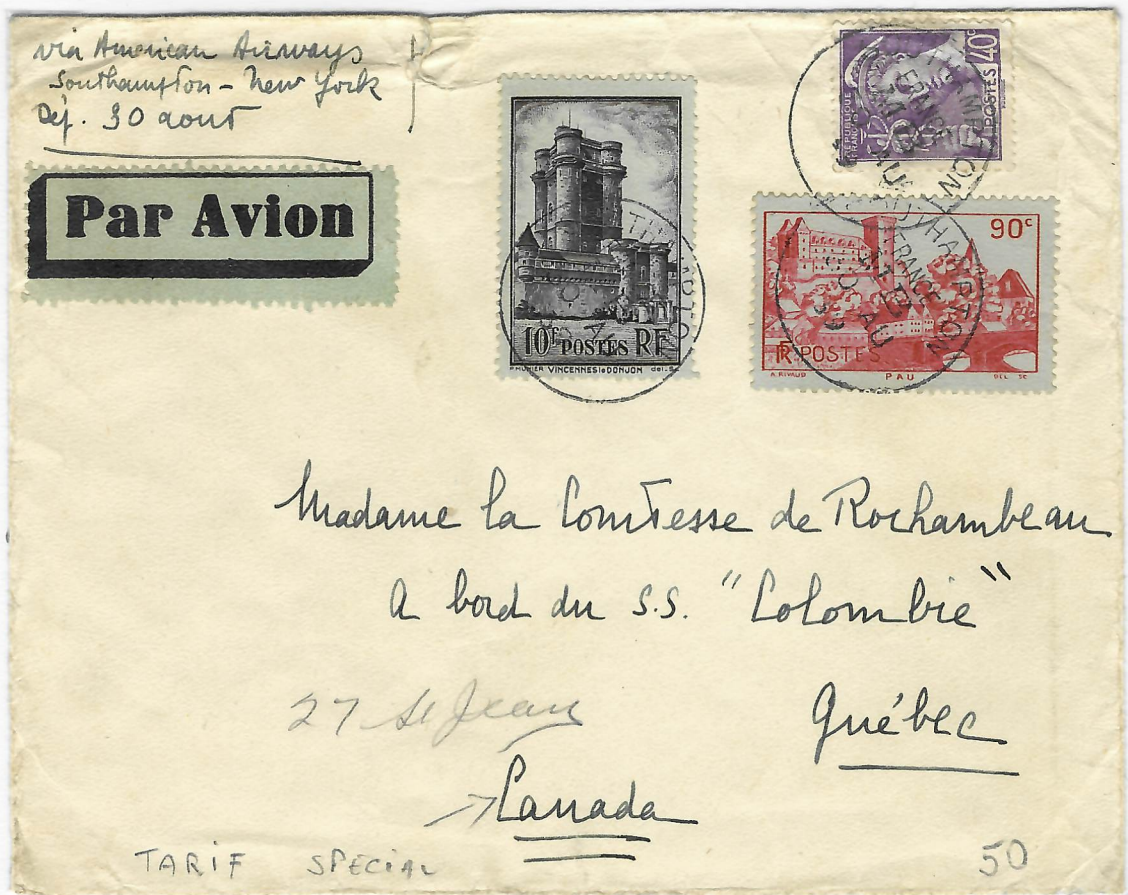 via American Airways
Southampton – New York
Dép. 30 aout
Par Avion
10F POSTES RF
VINCENNES le DONJON del. sc.
REPUBLIQUE FRANÇAISE
POSTES 40c
90c
RF POSTES
A. RIVAUD PAU DEL. SC.
FRANCE
Madame la Comtesse de Rochambeau
A bord du S.S. "Colombie"
27 St Jean
Québec
Canada
TARIF SPECIAL
50